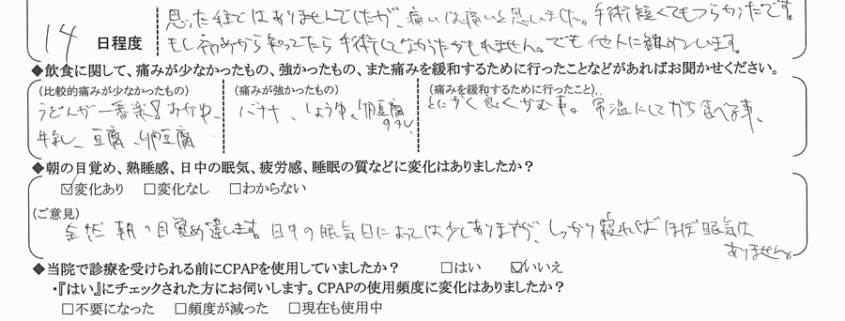 思った程ではありませんでしたが、痛いは痛いと思いました。手術短くてもつらかったです
14 日程度
もし初めから知ってたら手術してなかったかもしれません。でも他人に勧めています。
◆飲食に関して、痛みが少なかったもの、強かったもの、また痛みを緩和するために行ったことなどがあればお聞かせください。
(比較的痛みが少なかったもの)
うどんが一番楽! おかゆ、
牛乳、豆腐、卵豆腐
(痛みが強かったもの)
バナナ、しょうゆ、卵豆腐
のタレ
(痛みを緩和するために行ったこと)
とにかく良くかむ事。常温にしてから食べる事、
◆朝の目覚め、熟睡感、日中の眠気、疲労感、睡眠の質などに変化はありましたか?
☑変化あり □変化なし □わからない
(ご意見)
全然 朝の目覚め違います。日中の眠気日によっては少しありますが、しっかり寝ればほぼ眠気は
ありません。
◆当院で診療を受けられる前にCPAPを使用していましたか? □はい ☑いいえ
・『はい』にチェックされた方にお伺いします。CPAPの使用頻度に変化はありましたか?
□不要になった □頻度が減った □現在も使用中